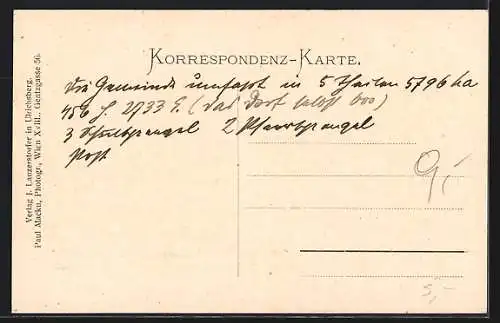 KORRESPONDENZ-KARTE.
Die Gemeinde umfasst in 5 Theilen 5796 ha
456 H. 2733 E. (das Dorf selbst 600)
3 Schulsprengel 2 Pfarrsprengel
Post
9,-
5,-
Verlag J. Lanzerstorfer in Ulrichsberg.
Paul Macku, Photogr., Wien XVIII., Gentzgasse 56.